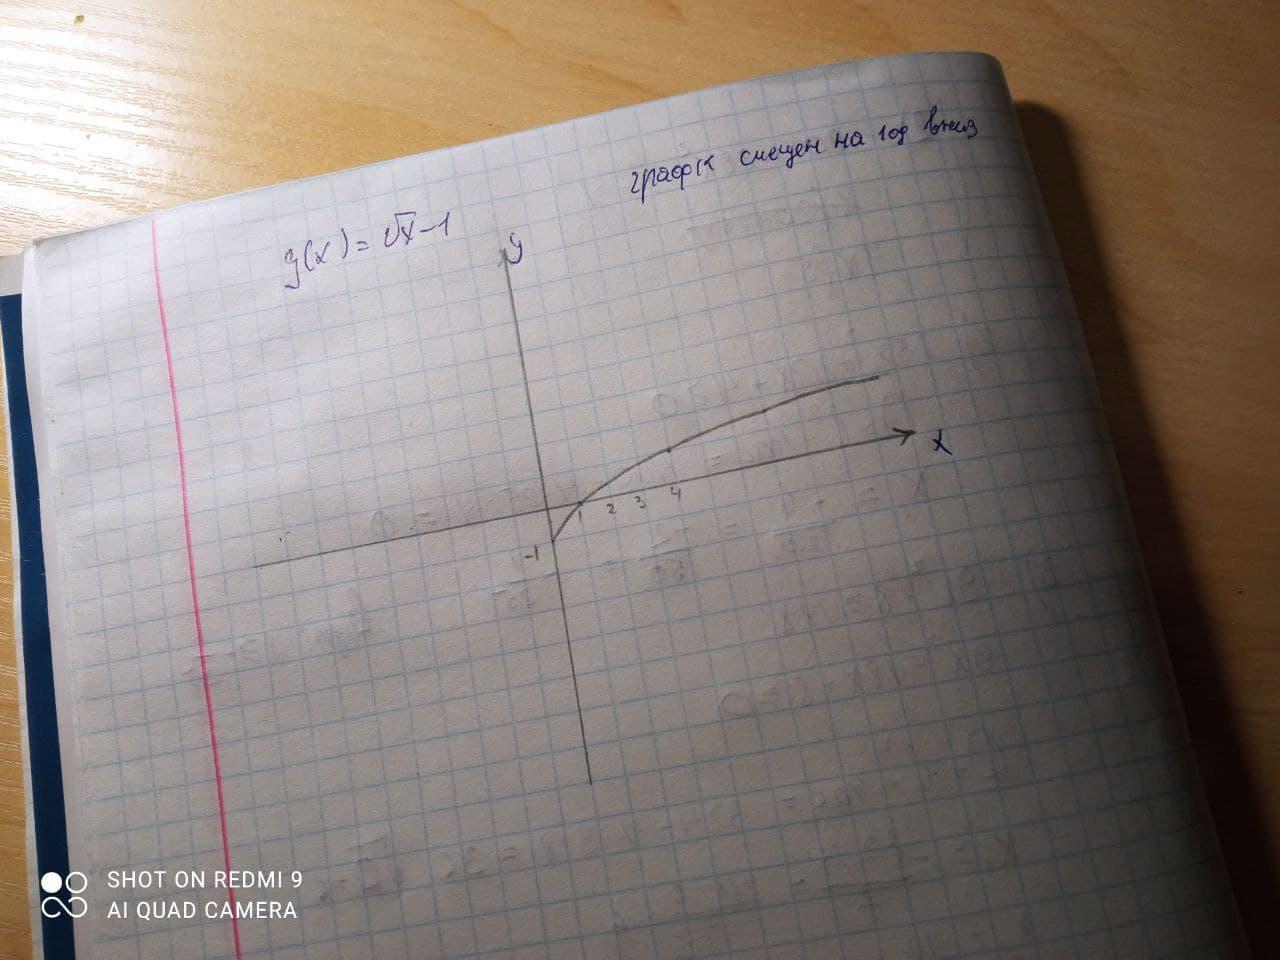 график смещен на 1 од вниз
y(x) = √x - 1
y
x
1 2 3 4
-1
SHOT ON REDMI 9
AI QUAD CAMERA